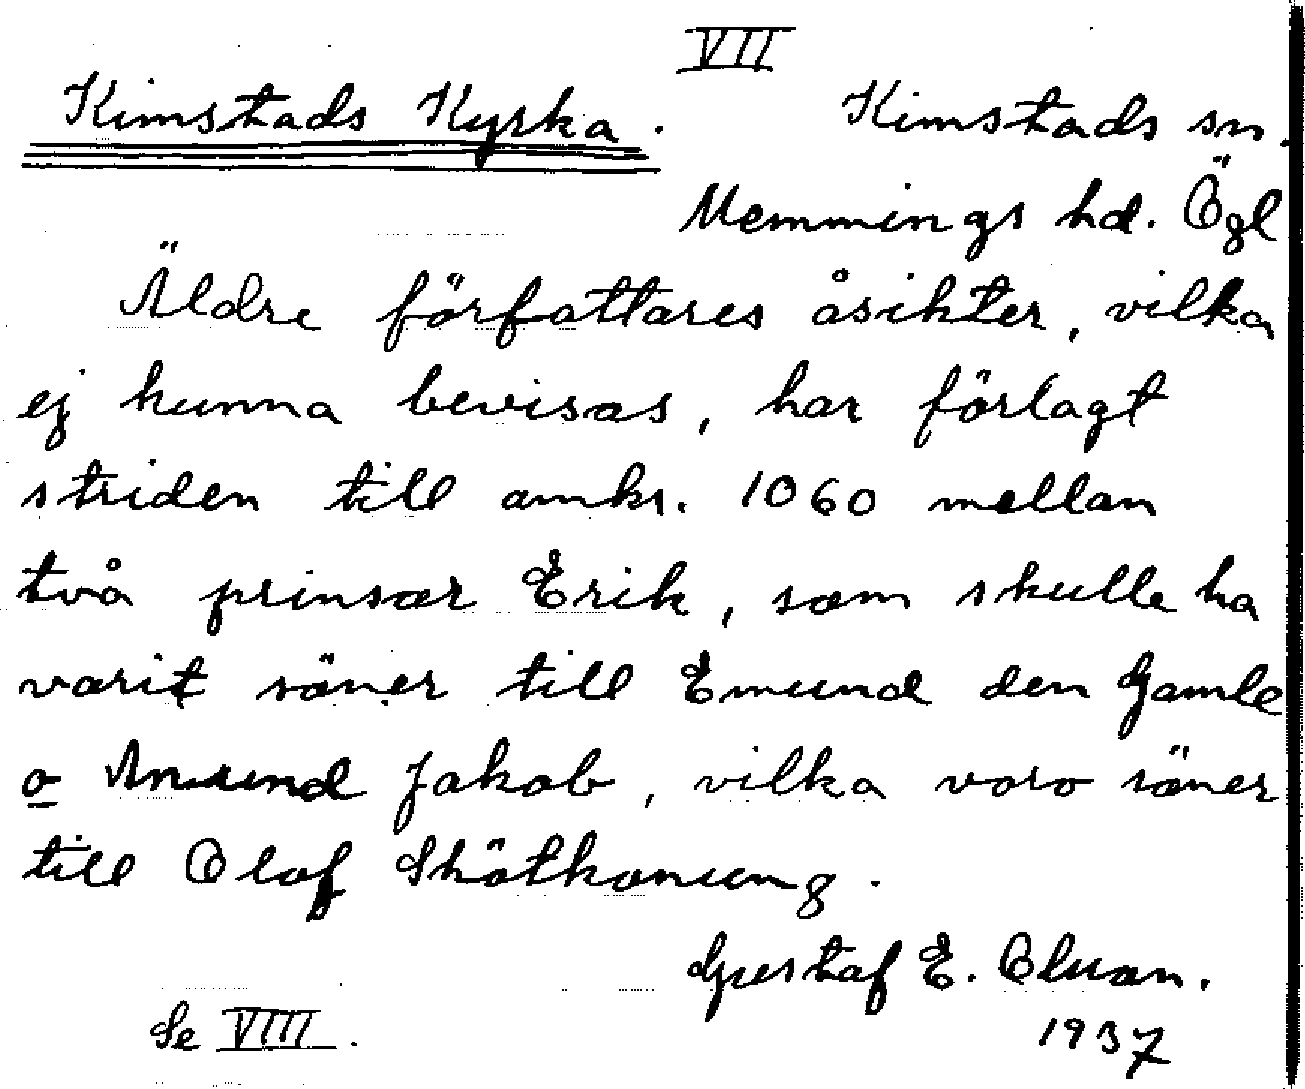 VII
Kimstads Kyrka. Kimstads sn.
Memmings hd. Ögl
Äldre författares åsikter, vilka
ej kunna bevisas, har förlagt
striden till omkr. 1060 mellan
två prinsar Erik, som skulle ha
varit söner till Emund den Gamle
o Anund Jakob, vilka voro söner
till Olof Skötkonung.
Gustaf E.
Se VIII. 1937